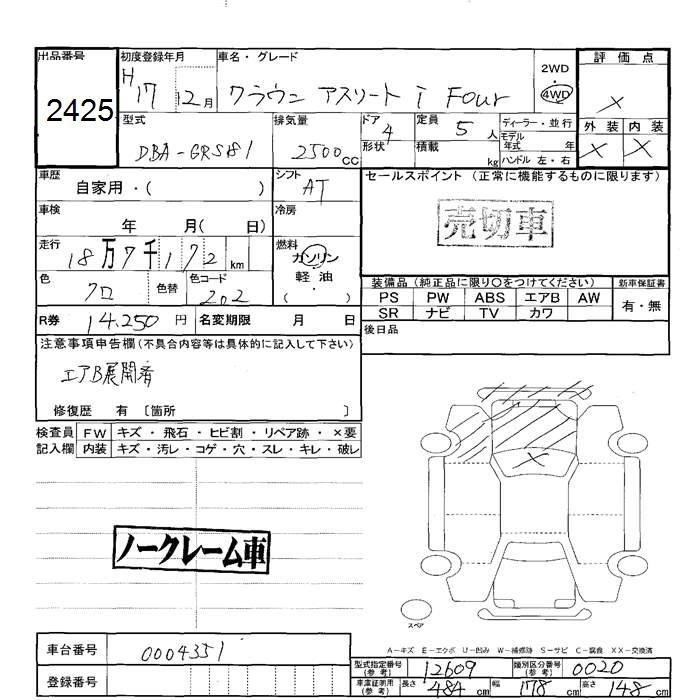 出品番号
2425
初度登録年月
H17 12月
車名・グレード
クラウン アスリート i Four
2WD
4WD
評価点
×
外装 内装
× ×
型式
DBA-GRS181
排気量
2500cc
ドア
4
形状
定員
5人
積載
kg
ディーラー・並行
モデル年式 年
ハンドル 左・右
車歴
自家用・( )
シフト
AT
セールスポイント(正常に機能するものに限ります)
売切車
車検
年 月( 日)
冷房
走行
18万7千172km
燃料
ガソリン
軽油
( )
色
クロ
色替
色コード
202
装備品(純正品に限り○をつけてください)
新車保証書
PS PW ABS エアB AW
SR ナビ TV カワ
有・無
R券 14,250円
名変期限 月 日
後日品
注意事項申告欄(不具合内容等は具体的に記入して下さい)
エアB展開済
修復歴 有 〔箇所 〕
検査員記入欄
FW キズ・飛石・ヒビ割・リペア跡・×要
内装 キズ・汚レ・コゲ・穴・スレ・キレ・破レ
ノークレーム車
×
スペア
A-キズ E-エクボ U-凹み W-補修跡 S-サビ C-腐食 XX-交換済
車台番号
0004351
登録番号
型式指定番号(参考)
12609
類別区分番号(参考)
0020
車庫証明用(参考)
長さ 484cm
幅 178cm
高さ 148cm